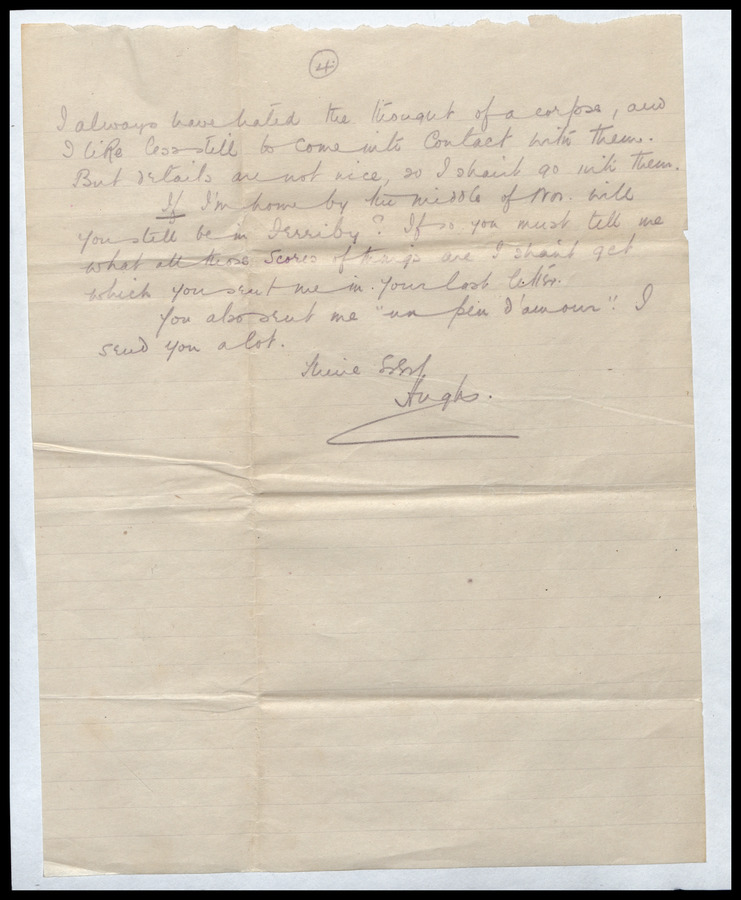 4.
I always have hated the thought of a corpse, and
I like less still to come into contact with them.
But details are not nice, so I shan't go into them.
If I'm home by the middle of Nov. will
you still be in ? If so you must tell me
what all those scores of things are I shan't get
which you sent me in your last letter.
You also sent me "un peu d'amour"! I
send you a lot.
Thine
Hugh.